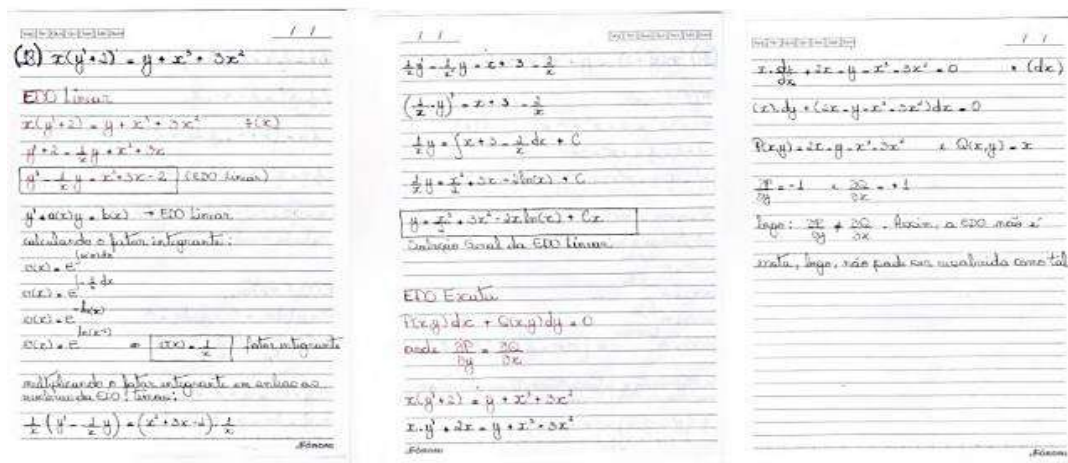 (13) x(y'+2) = y + x³ + 3x²
EDO Linear
x(y'+2) = y + x³ + 3x² ÷(x)
y'+2 = 1/x y + x² + 3x
y' - 1/x y = x² + 3x - 2 (EDO Linear)
y' + a(x)y = b(x) → EDO Linear
calculando o fator integrante:
σ(x) = e^∫a(x)dx
σ(x) = e^∫-1/x dx
σ(x) = e^-ln(x)
σ(x) = e^ln(x⁻¹) ⇒ σ(x) = 1/x fator integrante
multiplicando o fator integrante em ambos os
membros da EDO Linear:
1/x (y' - 1/x y) = (x² + 3x - 2) · 1/x
1/x y' - 1/x² y = x + 3 - 2/x
(1/x · y)' = x + 3 - 2/x
1/x y = ∫ x + 3 - 2/x dx + C
1/x y = x²/2 + 3x - 2ln(x) + C
y = x³/2 + 3x² - 2x ln(x) + Cx
Solução Geral da EDO Linear
EDO Exata
P(x,y)dx + Q(x,y)dy = 0
onde ∂P/∂y = ∂Q/∂x
x(y'+2) = y + x³ + 3x²
x·y' + 2x = y + x³ + 3x²
x·dy/dx + 2x - y - x³ - 3x² = 0 • (dx)
(x)·dy + (2x - y - x³ - 3x²)dx = 0
P(x,y) = 2x - y - x³ - 3x² e Q(x,y) = x
∂P/∂y = -1 e ∂Q/∂x = +1
logo: ∂P/∂y ≠ ∂Q/∂x. Assim, a EDO não é
exata, logo, não pode ser resolvida como tal